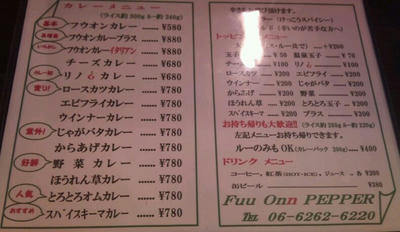 カレーメニュー
(ライス約300g ルー約240g)
フウオンカレー ...... ¥580
フウオンカレープラス ...... ¥880
フウオンカレーイタリアン ...... ¥880
チーズカレー ...... ¥780
リノカレー ...... ¥780
ロースカツカレー ...... ¥780
エビフライカレー ...... ¥780
ウインナーカレー ...... ¥780
じゃがバタカレー ...... ¥780
からあげカレー ...... ¥780
野菜カレー ...... ¥780
ほうれん草カレー ...... ¥780
とろとろオムカレー ...... ¥780
スペイスキーマカレー ...... ¥780
基本
意外!
好評
人気
おすすめ
玉子 ¥50
温泉玉子 ¥70
チーズ
ロースカツ
エビフライ ¥200
ウインナー ¥200
じゃがバタ ¥200
からあげ ¥200
野菜 ¥200
ほうれん草 ¥200
とろとろ玉子 ¥200
スペイスキーマ ¥200
プラス ¥300
お持ち帰りも大歓迎!!
左記メニューお持ち帰りできます。
ルーのみもOK(カレーパック 200g) ...... ¥400
ドリンクメニュー
コーヒー、紅茶(HOT・ICE)、ジュース 各 ¥200
缶ビール ...... ¥280
Fuu Onn PEPPER
TEL 06-6262-6220